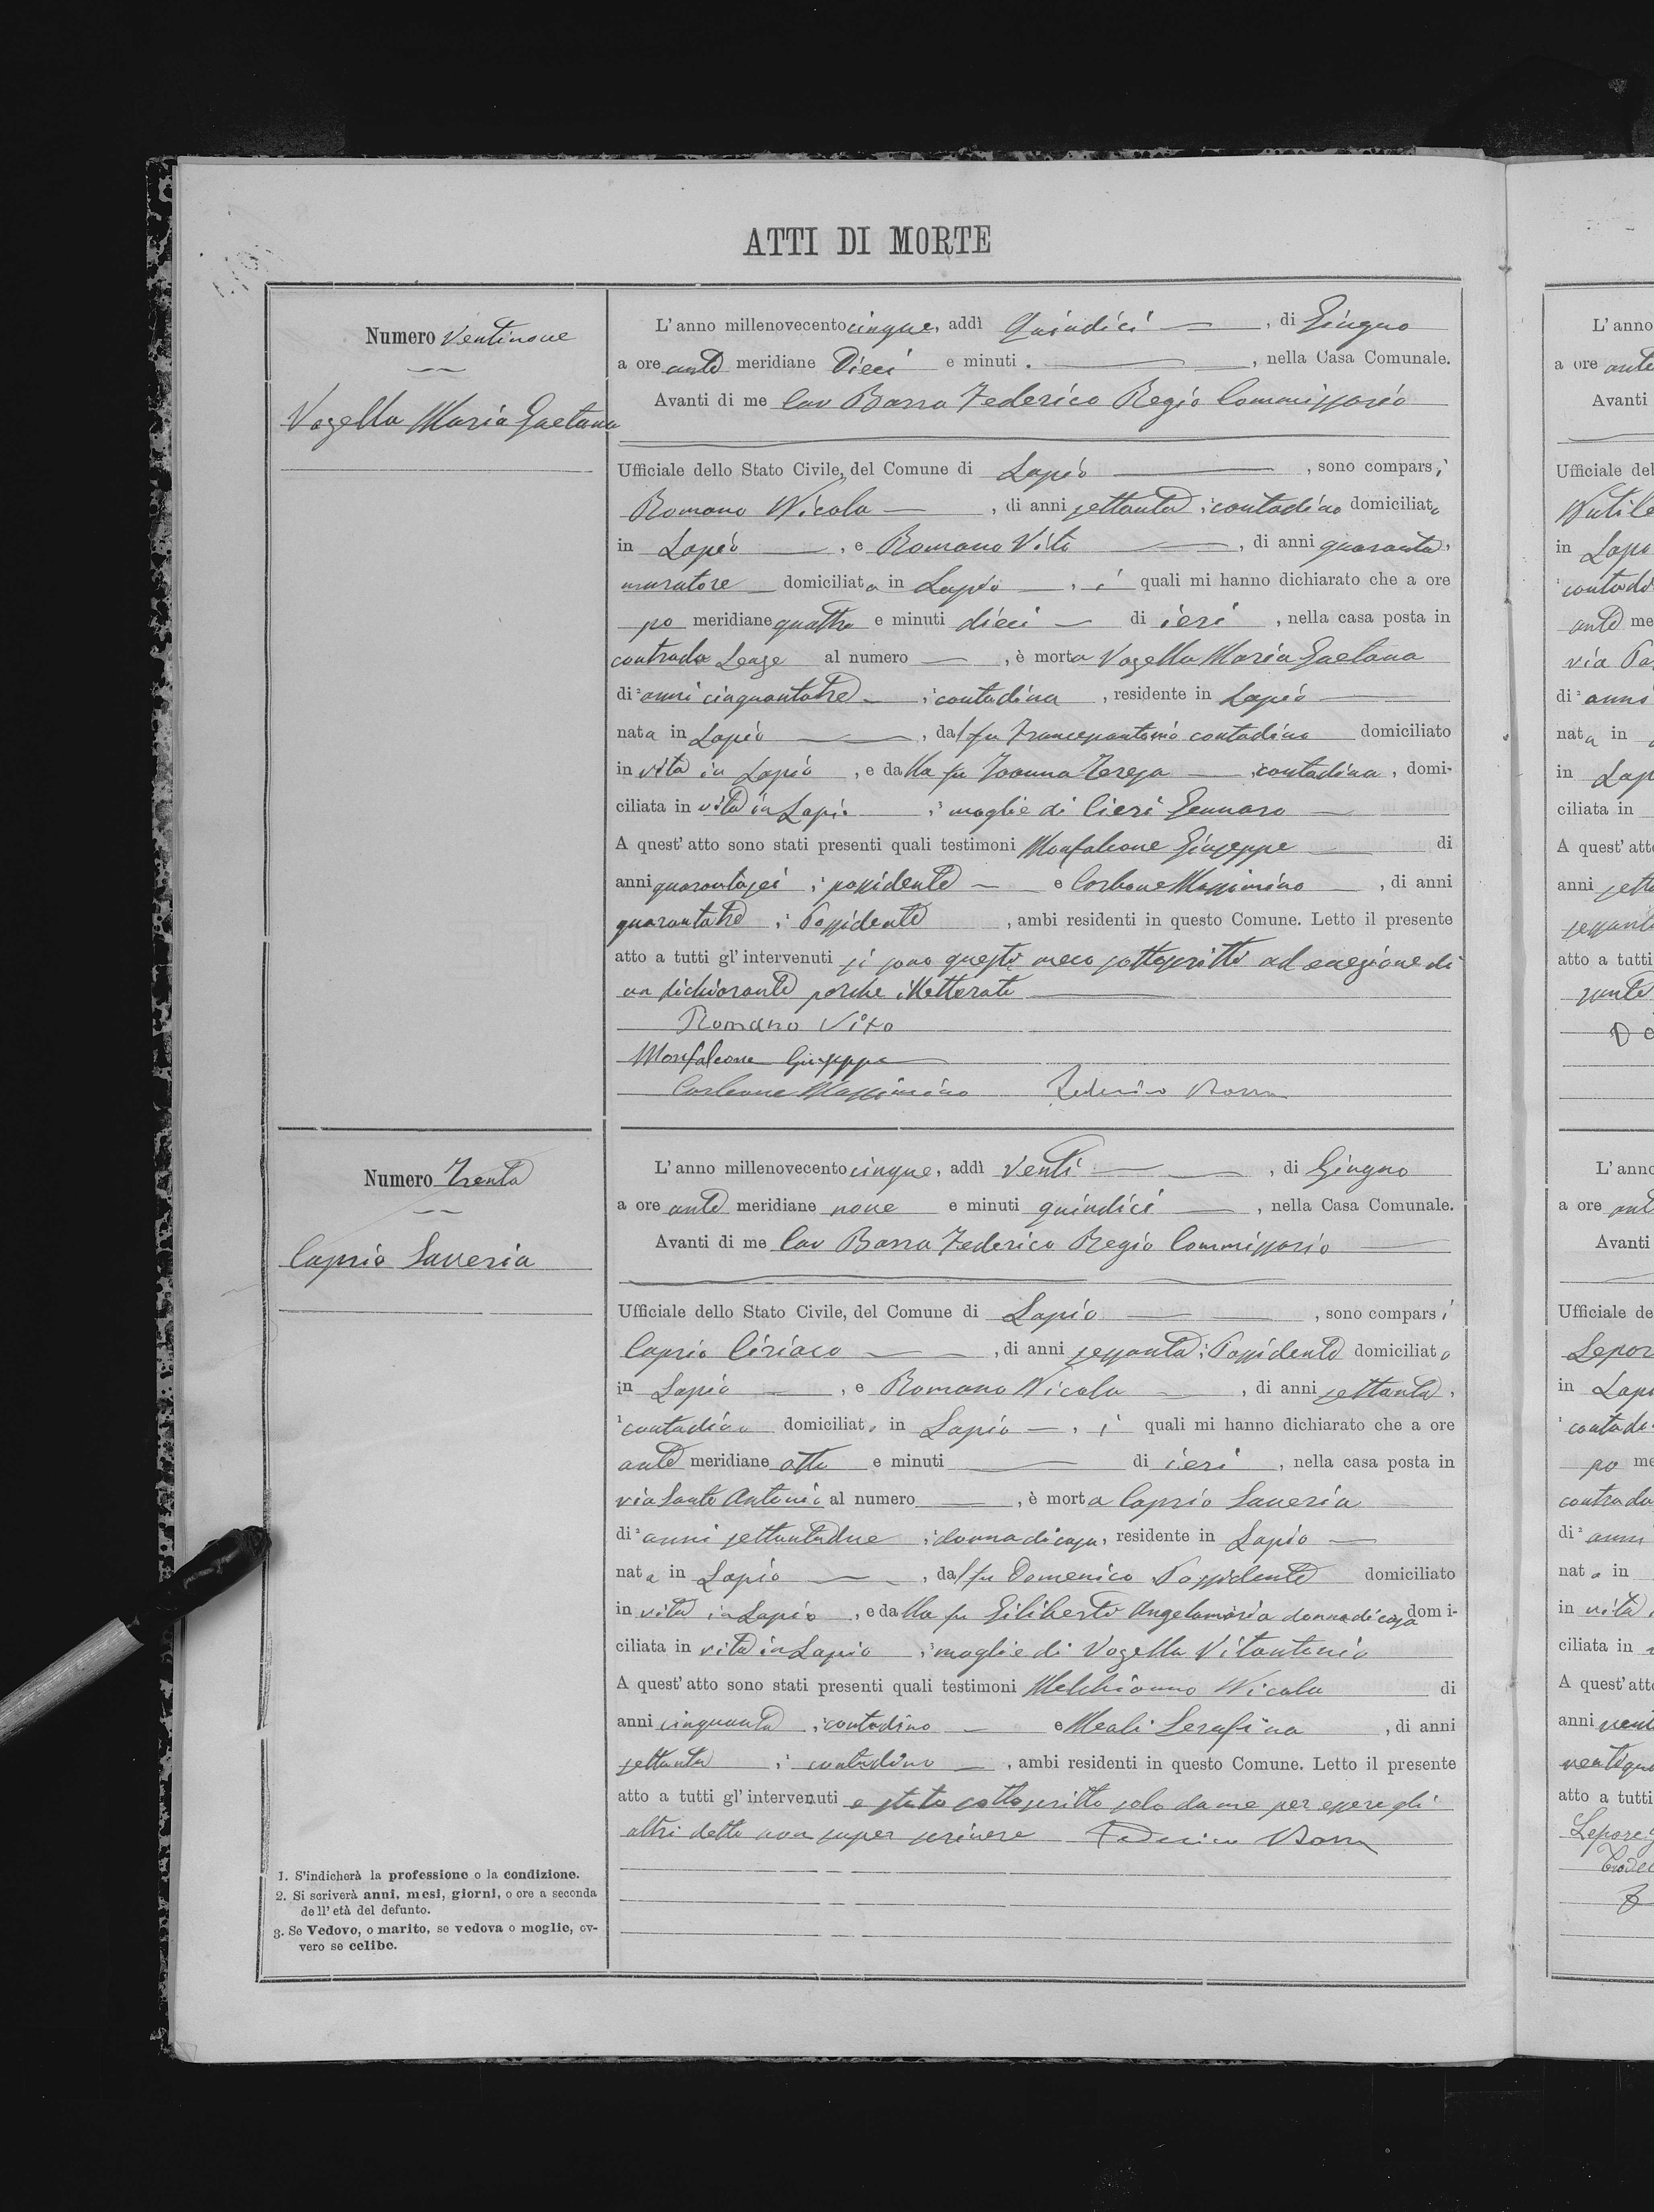 ATTI DI MORTE
Numero Ventinove
Vozella Maria Gaetana
L'anno millenovecentocinque, addì Quindici, di Giugno
a ore ante meridiane Dieci e minuti, nella Casa Comunale.
Avanti di me Cav Barra Federico Regio Commissario
Ufficiale dello Stato Civile, del Comune di Lapio, sono comparsi
Romano Nicola, di anni settanta, contadino domiciliato
in Lapio, e Romano Vito, di anni quaranta,
muratore domiciliato in Lapio, i quali mi hanno dichiarato che a ore
po meridiane quattro e minuti dieci di ieri, nella casa posta in
contrada al numero, è morta Vozella Maria Gaetana
di anni cinquantatre, contadina, residente in Lapio
nata in Lapio, dal fu contadino domiciliato
in vita in Lapio, e dalla fu Teresa, contadina, domi-
ciliata in vita in Lapio, moglie di Cieri Gennaro
A quest' atto sono stati presenti quali testimoni Monfalcone Giuseppe di
anni quarantasei, possidente e Carbone Massimino, di anni
quarantatre, Possidente, ambi residenti in questo Comune. Letto il presente
atto a tutti gl' intervenuti si sono questi meco sottoscritti ad eccezione di
un dichiarante perche illetterato
Romano Vito
Monfalcone Giuseppe
Carbone Massimino Federico Barra
Numero Trenta
Caprio Saveria
L'anno millenovecentocinque, addì Venti, di Giugno
a ore ante meridiane nove e minuti quindici, nella Casa Comunale.
Avanti di me Cav Barra Federico Regio Commissario
Ufficiale dello Stato Civile, del Comune di Lapio, sono comparsi
Caprio Ciriaco, di anni sessanta, Possidente domiciliato
in Lapio, e Romano Nicola, di anni settanta,
contadino domiciliato in Lapio, i quali mi hanno dichiarato che a ore
ante meridiane otto e minuti di ieri, nella casa posta in
via Santo Antonio al numero, è morta Caprio Saveria
di anni settantadue, donna di casa, residente in Lapio
nata in Lapio, dal fu Domenico Possidente domiciliato
in vita in Lapio, e dalla fu Giliberto Angelamaria donna di casa domi-
ciliata in vita in Lapio, moglie di Vozella Vitantonio
A quest' atto sono stati presenti quali testimoni Melchionno Nicola di
anni cinquanta, contadino e Meoli Serafino, di anni
settanta, contadino, ambi residenti in questo Comune. Letto il presente
atto a tutti gl' intervenuti e stato sottoscritto solo da me per essere gli
altri detto non saper scrivere Federico Barra
1. S'indicherà la professione o la condizione.
2. Si scriverà anni, mesi, giorni, o ore a seconda
dell' età del defunto.
3. Se Vedovo, o marito, se vedova o moglie, ov-
vero se celibe.
L'anno
a ore ante
Avanti
Ufficiale del
in Lapio
ante me
di anni
nata in
in Lap
ciliata in
A quest' atto
atto a tutti
L'anno
a ore ant
Avanti
Ufficiale de
Lepor
in Lapi
po me
contrada
di anni
nato in
in vita
ciliata in
A quest' atto
anni
atto a tutti
Lepore